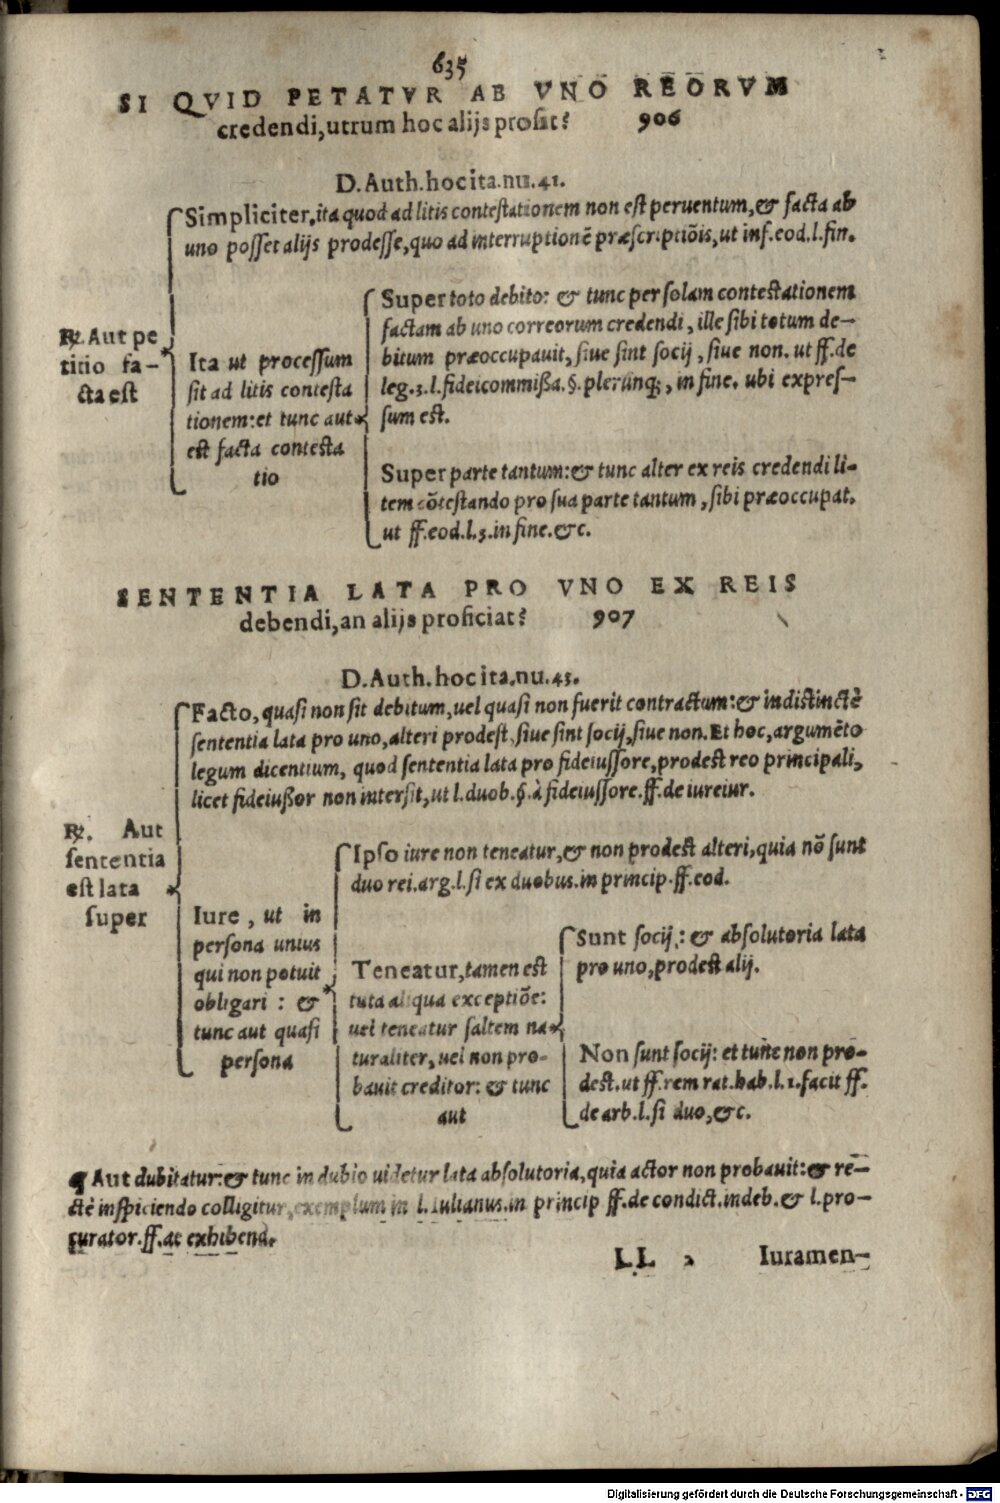 635
SI QVID PETATVR AB VNO REORVM
credendi, utrum hoc alijs prosit? 906
D. Auth. hoc ita. nu. 41.
Simpliciter, ita quod ad litis contestationem non est peruentum, & facta ab
uno posset alijs prodesse, quo ad interruptionē præscriptiōis, ut inf. eod. l. fin.
℞. Aut pe
titio fa-
cta est
Ita ut processum
sit ad litis contesta
tionem: et tunc aut
est facta contesta
tio
Super toto debito: & tunc per solam contestationem
factam ab uno correorum credendi, ille sibi totum de-
bitum præoccupauit, siue sint socij, siue non. ut ff. de
leg. 3. l. fideicommißa. §. plerunq;, in fine. ubi expres-
sum est.
Super parte tantum: & tunc alter ex reis credendi li-
tem cōtestando pro sua parte tantum, sibi præoccupat.
ut ff. eod. l. 3. in fine. &c.
SENTENTIA LATA PRO VNO EX REIS
debendi, an alijs proficiat? 907
D. Auth. hoc ita. nu. 43.
Facto, quasi non sit debitum, uel quasi non fuerit contractum: & indistinctè
sententia lata pro uno, alteri prodest, siue sint socij, siue non. Et hoc, argumēto
legum dicentium, quod sententia lata pro fideiussore, prodest reo principali,
licet fideiußor non intersit, ut l. duob. §. à fideiussore. ff. de iureiur.
℞. Aut
sententia
est lata
super
Iure, ut in
persona unius
qui non potuit
obligari : &
tunc aut quasi
persona
Ipso iure non teneatur, & non prodest alteri, quia nō sunt
duo rei. arg. l. si ex duobus. in princip. ff. eod.
Teneatur, tamen est
tuta aliqua exceptiōe:
uel teneatur saltem na
turaliter, uel non pro-
bauit creditor: & tunc
aut
Sunt socij: & absolutoria lata
pro uno, prodest alij.
Non sunt socij: et tunc non pro-
dest. ut ff. rem rat. hab. l. 1. facit ff.
de arb. l. si duo, &c.
¶ Aut dubitatur: & tunc in dubio uidetur lata absolutoria, quia actor non probauit: & re-
ctè inspiciendo colligitur, exemplum in l. Iulianus. in princip ff. de condict. indeb. & l. pro-
curator. ff. ad exhibend.
LL 2 Iuramen-
Digitalisierung gefördert durch die Deutsche Forschungsgemeinschaft - DFG